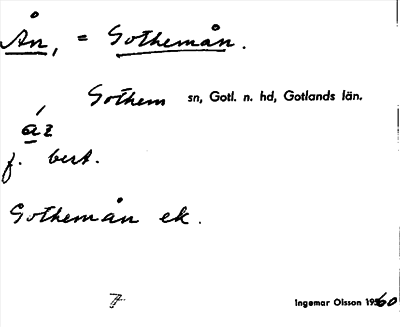 Ån, = Gothemån.
Gothem sn, Gotl. n. hd, Gotlands län.
áz
f. best.
Gothemån ek.
7
Ingemar Olsson 1960